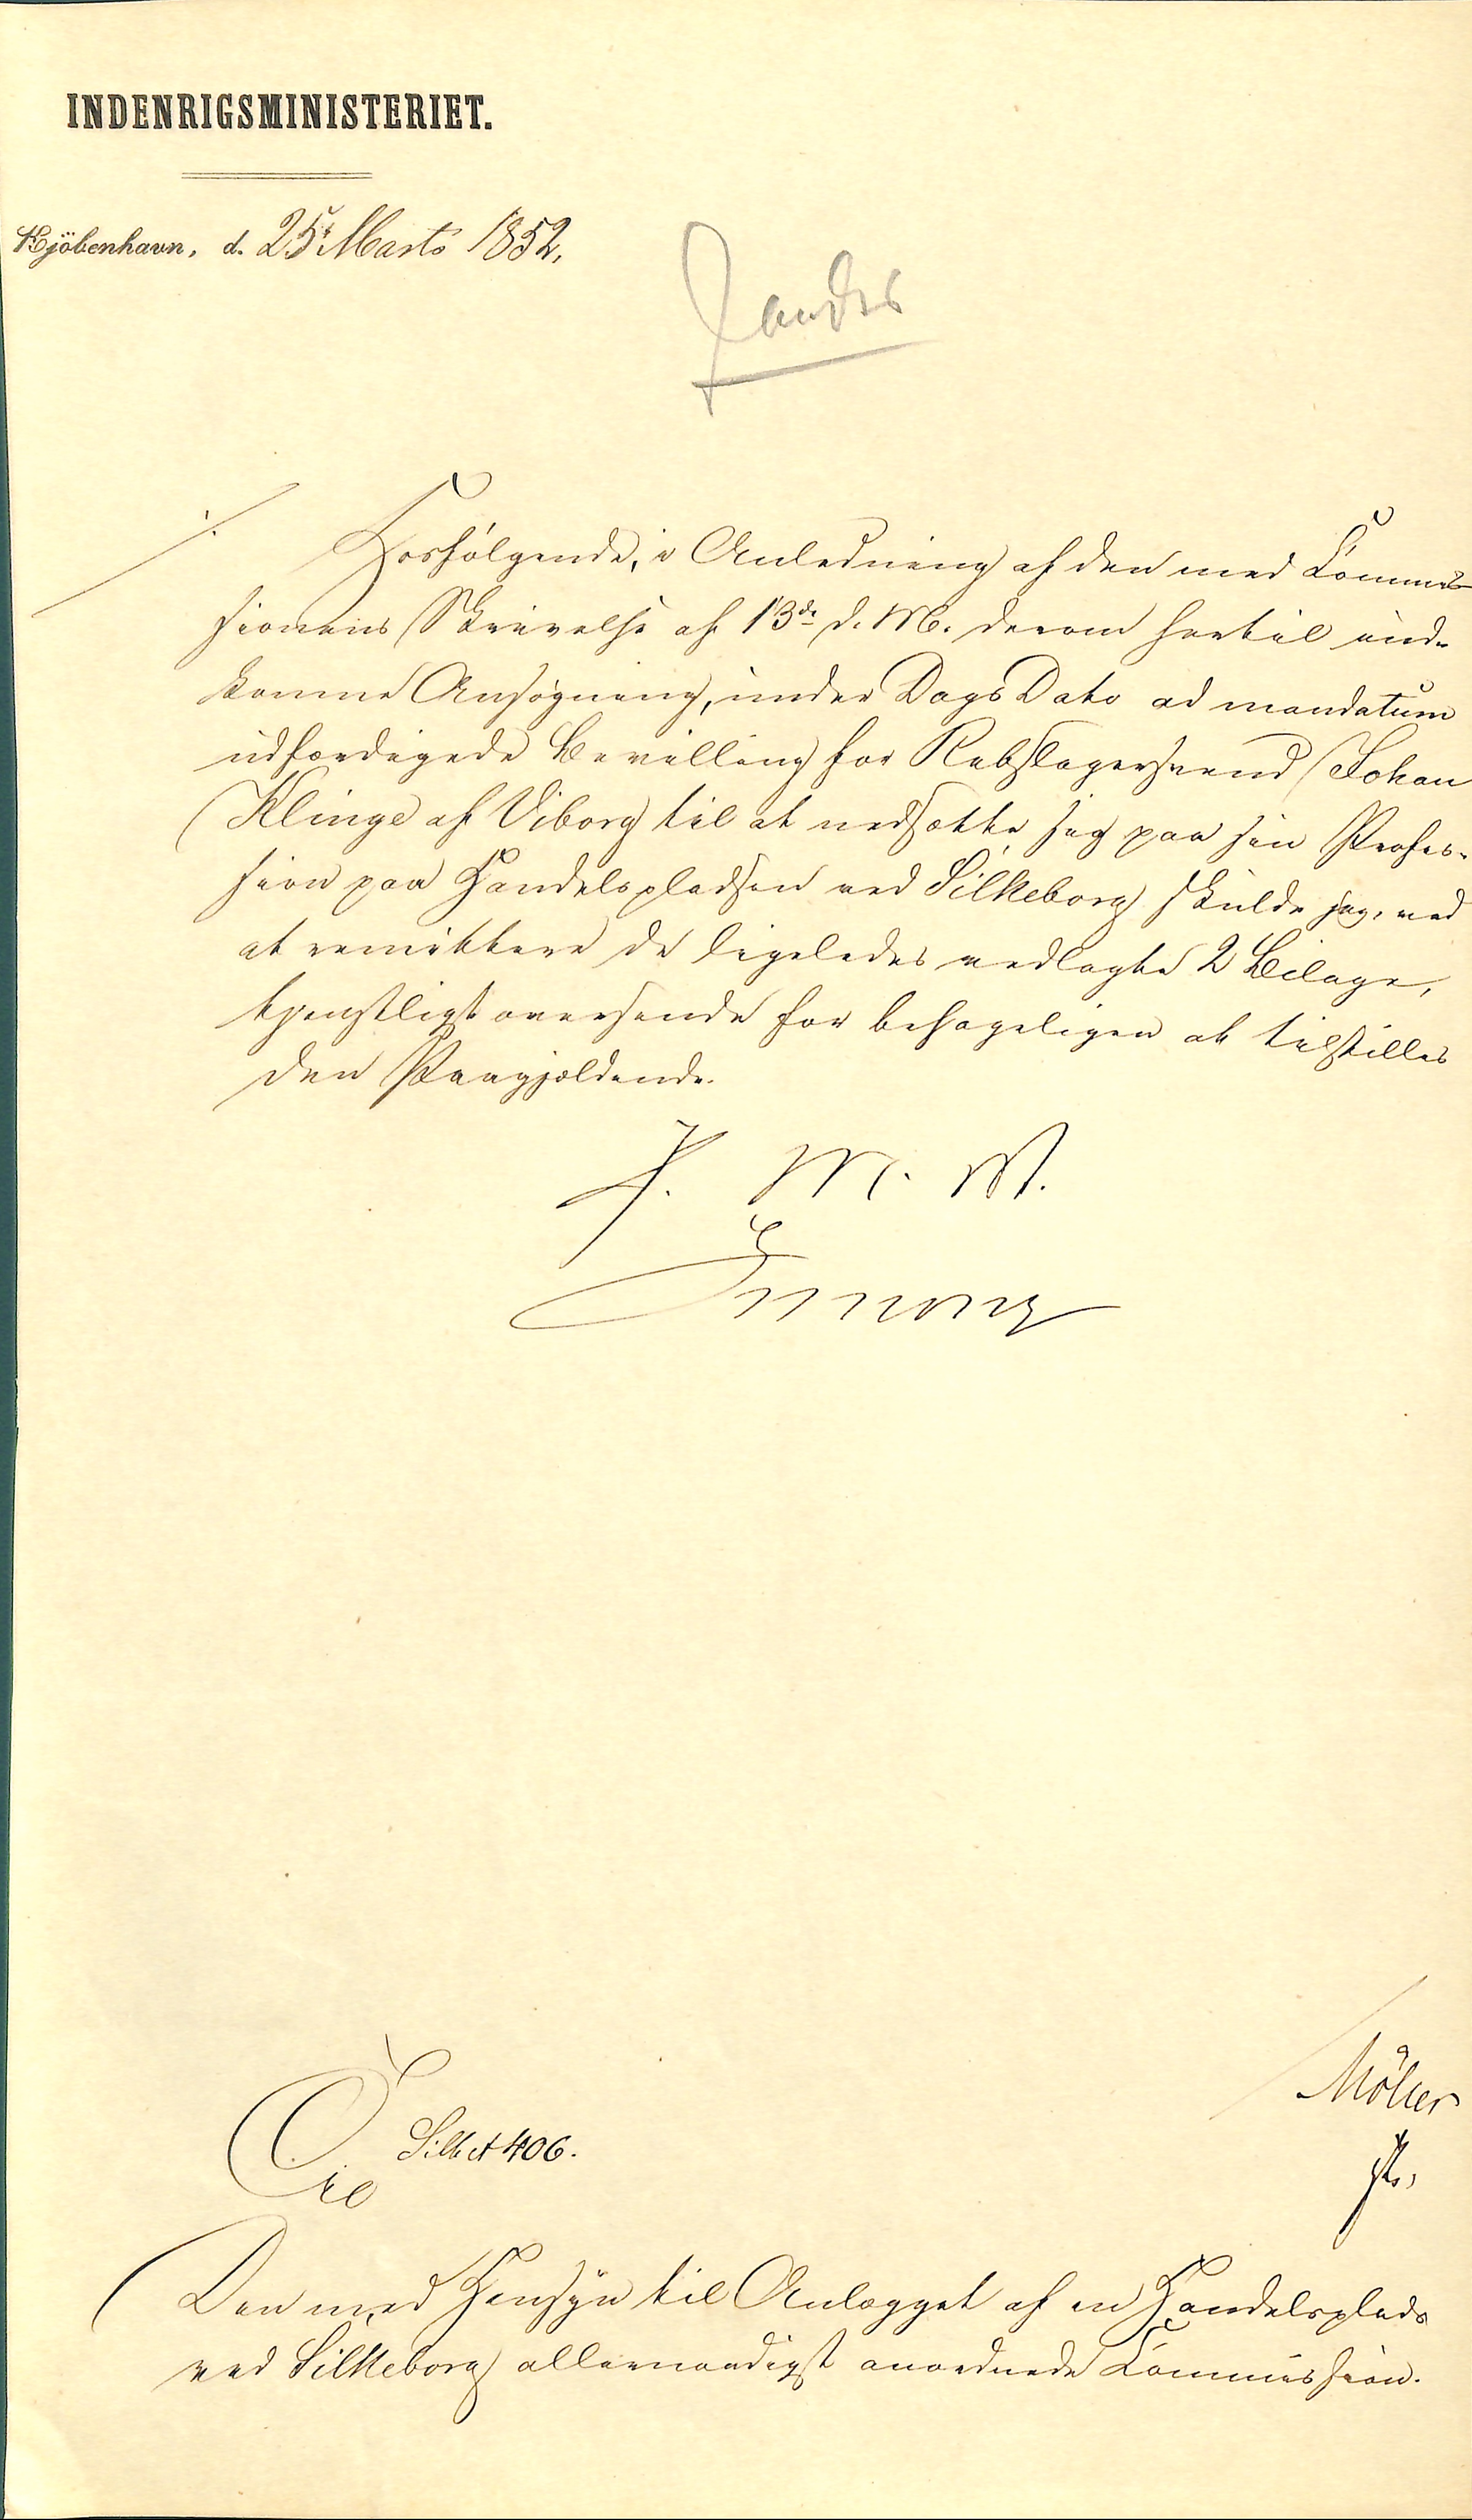 INDENRIGSMINISTERIET.
Kjöbenhavn, d. 25 Marts 1852.
Hosfølgende, i Anledning af den med Commis-
sionens Skrivelse af 13de d. M. derom hertil ind-
komne Ansøgning, under Dags Dato ad mandatum
udfærdigede Bevilling for Rebslagersvend Johan
Klinge af Viborg til at nedsætte sig paa sin Profes-
sion paa Handelspladsen ved Silkeborg skulde jeg, ved
at remittere de ligeledes vedlagte 2 Bilage,
tjenstligst oversende for behageligen at tilstilles
den Paagjældende.
F. M. M.
Møller
Silk et 406.
Den med Hensyn til Anlægget af en Handelsplads
ved Silkeborg allernaadigst anordnede Commission.